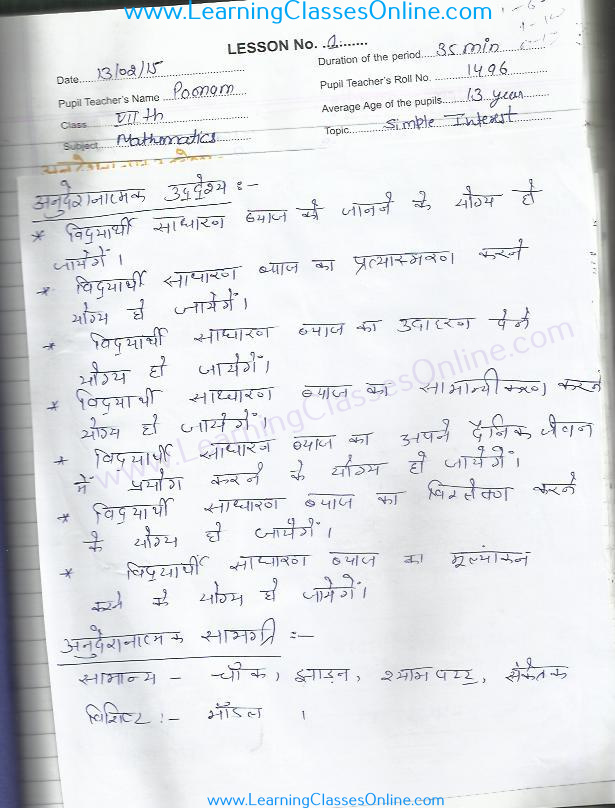 www.LearningClassesOnline.com
LESSON No. .1:.......
Date 13/02/15
Duration of the period 35 min
Pupil Teacher's Name Poonam
Pupil Teacher's Roll No. 1496
Class VII th
Average Age of the pupils 13 year
Subject Mathematics
Topic Simple Interest
अनुदेशनात्मक उद्देश्य :-
* विद्यार्थी साधारण ब्याज को जानने के योग्य हो
जायेगें।
* विद्यार्थी साधारण ब्याज का प्रत्यास्मरण करने
योग्य हो जायेगें।
* विद्यार्थी साधारण ब्याज का उदाहरण देने
योग्य हो जायेगें।
* विद्यार्थी साधारण ब्याज का सामान्यीकरण करने
योग्य हो जायेगें।
* विद्यार्थी साधारण ब्याज का अपने दैनिक जीवन
में प्रयोग करने के योग्य हो जायेगें।
* विद्यार्थी साधारण ब्याज का विश्लेषण करने
के योग्य हो जायेगें।
* विद्यार्थी साधारण ब्याज का मूल्यांकन
करने के योग्य हो जायेगें।
अनुदेशनात्मक सामग्री :-
सामान्य - चॉक, झाड़न, श्यामपट्ट, संकेतक
विशिष्ट :- मॉडल ।
www.LearningClassesOnline.com
www.LearningClassesOnline.com